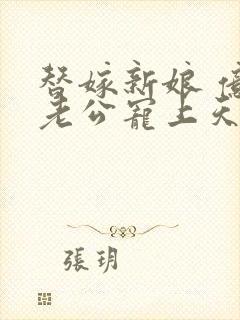 替嫁新娘 億
老公寵上天
張玥